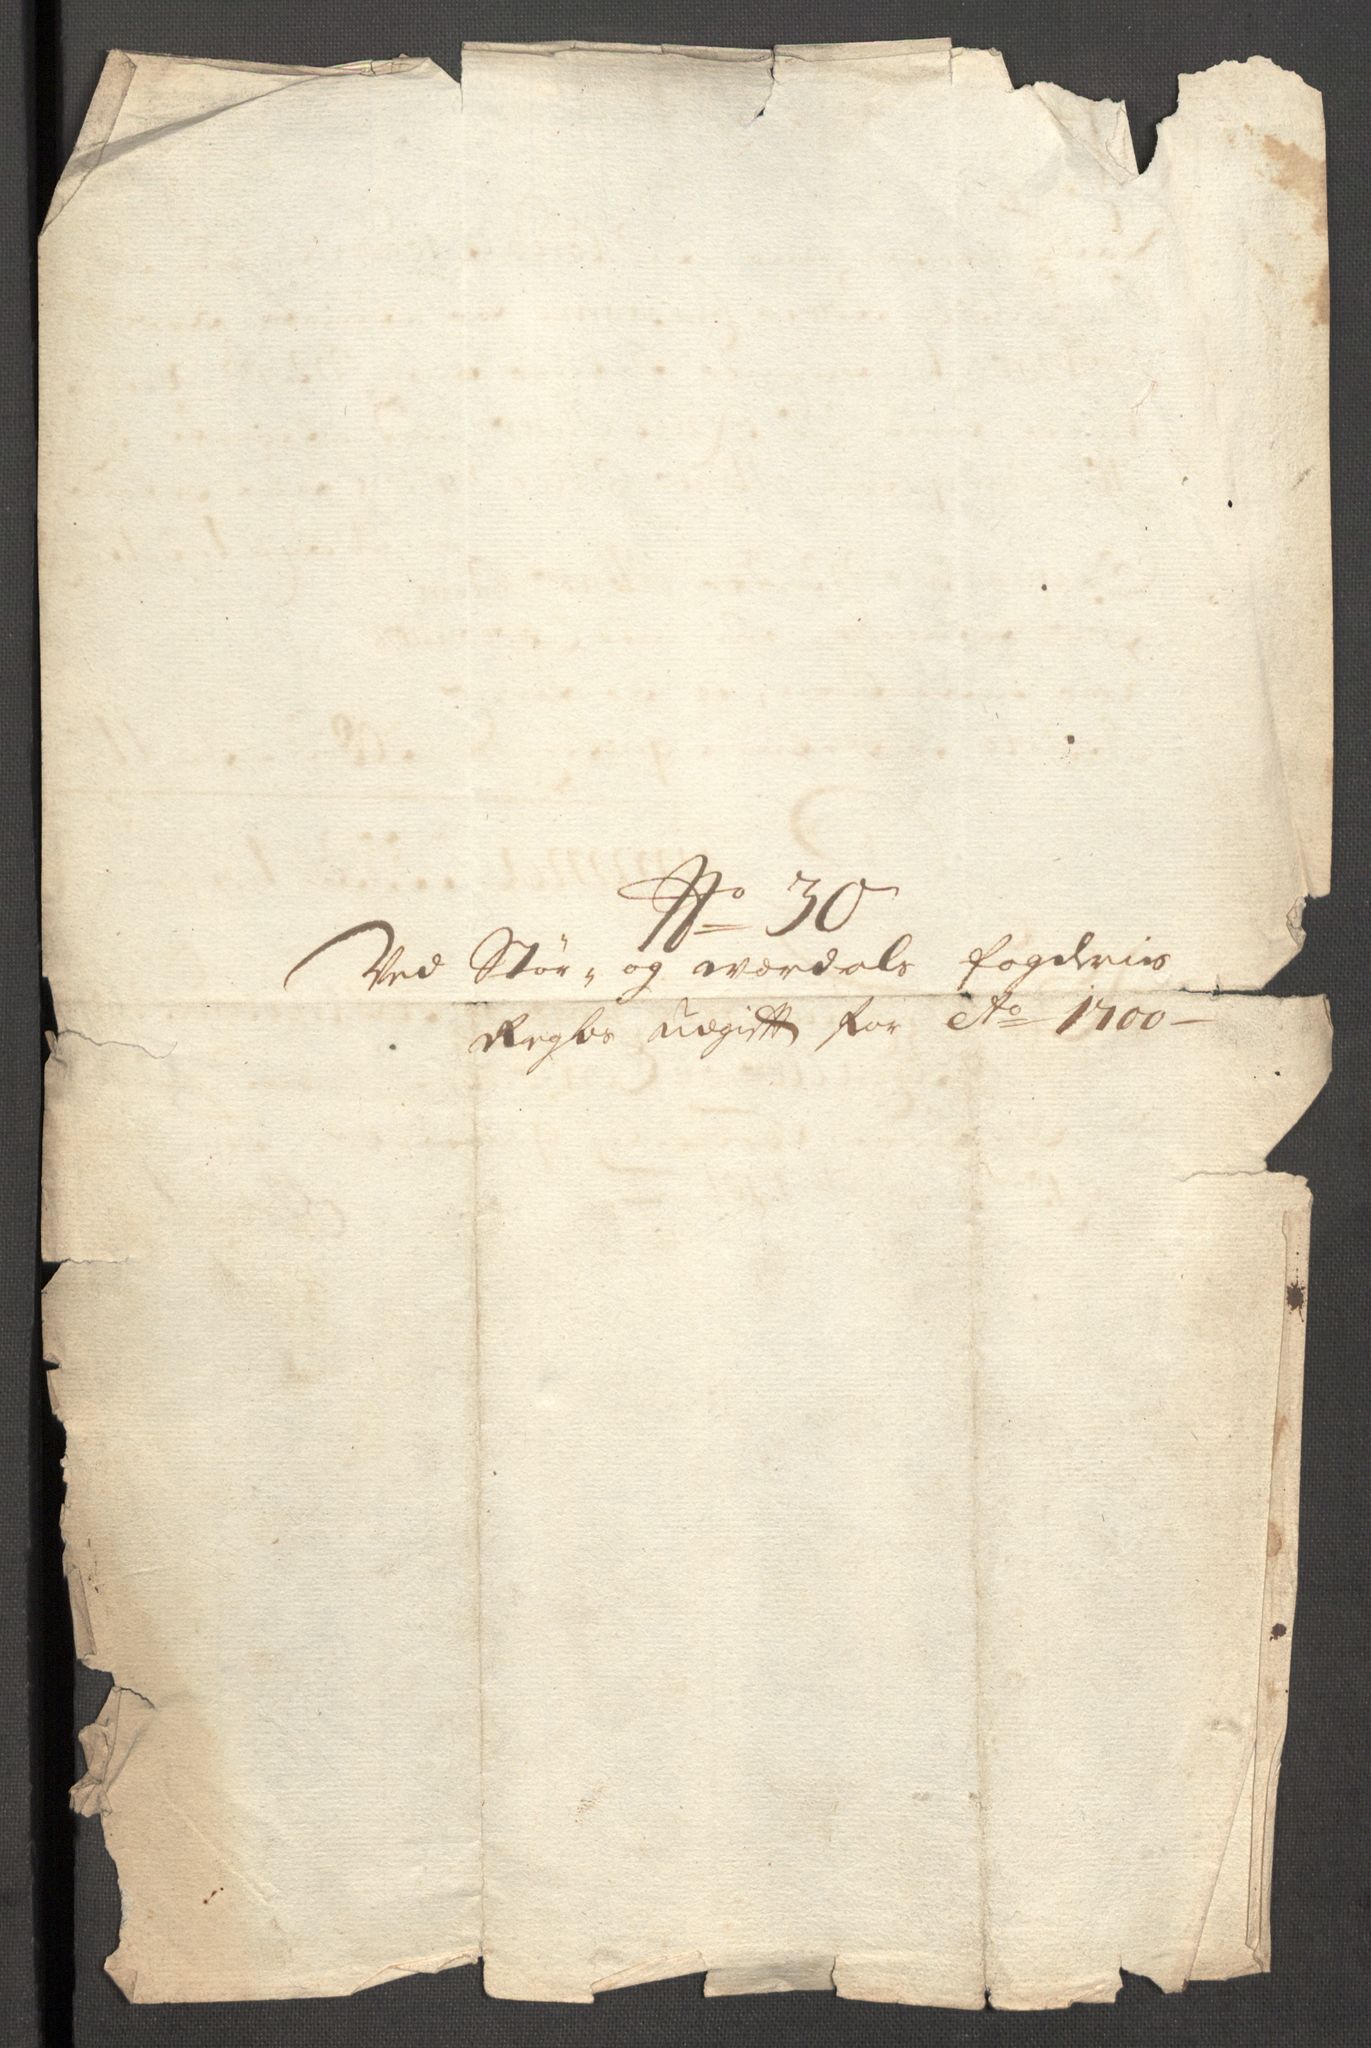 No 30
Ved Stör- og Værdals fogderies
Regbs Udgifft for Ao 1700